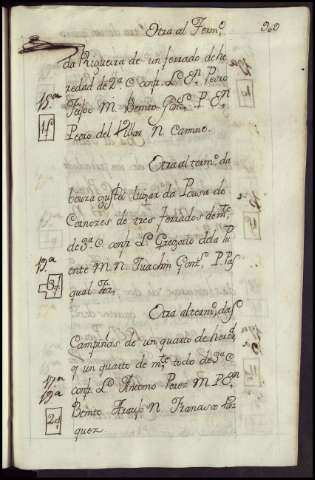 Otra al Term.º 960
da Riqueira de un ferrado de he
redad de 2.ª C conf. L. Dn. Pedro
M Benito Gonz.z P. Dn
Pedro del Villar N. Camino.
15.ª
1f
Otra al term.º da
lugar da Pousa de
de tres ferrados de m.te
de 3.ª C. conf. L. Gregorio de la Pu
ente M. N. Juachin Gonz.z P. Pas
qual Frz.
13.ª
3f
Otra al term.º das
Campiñas de un quarto de hered.
y un quarto de m.te todo de 3.ª C
conf. L. Antonio Perez M. P. Dn
Benito Araujo N. Francisco Vaz
quez
17.ª
19.ª
2q